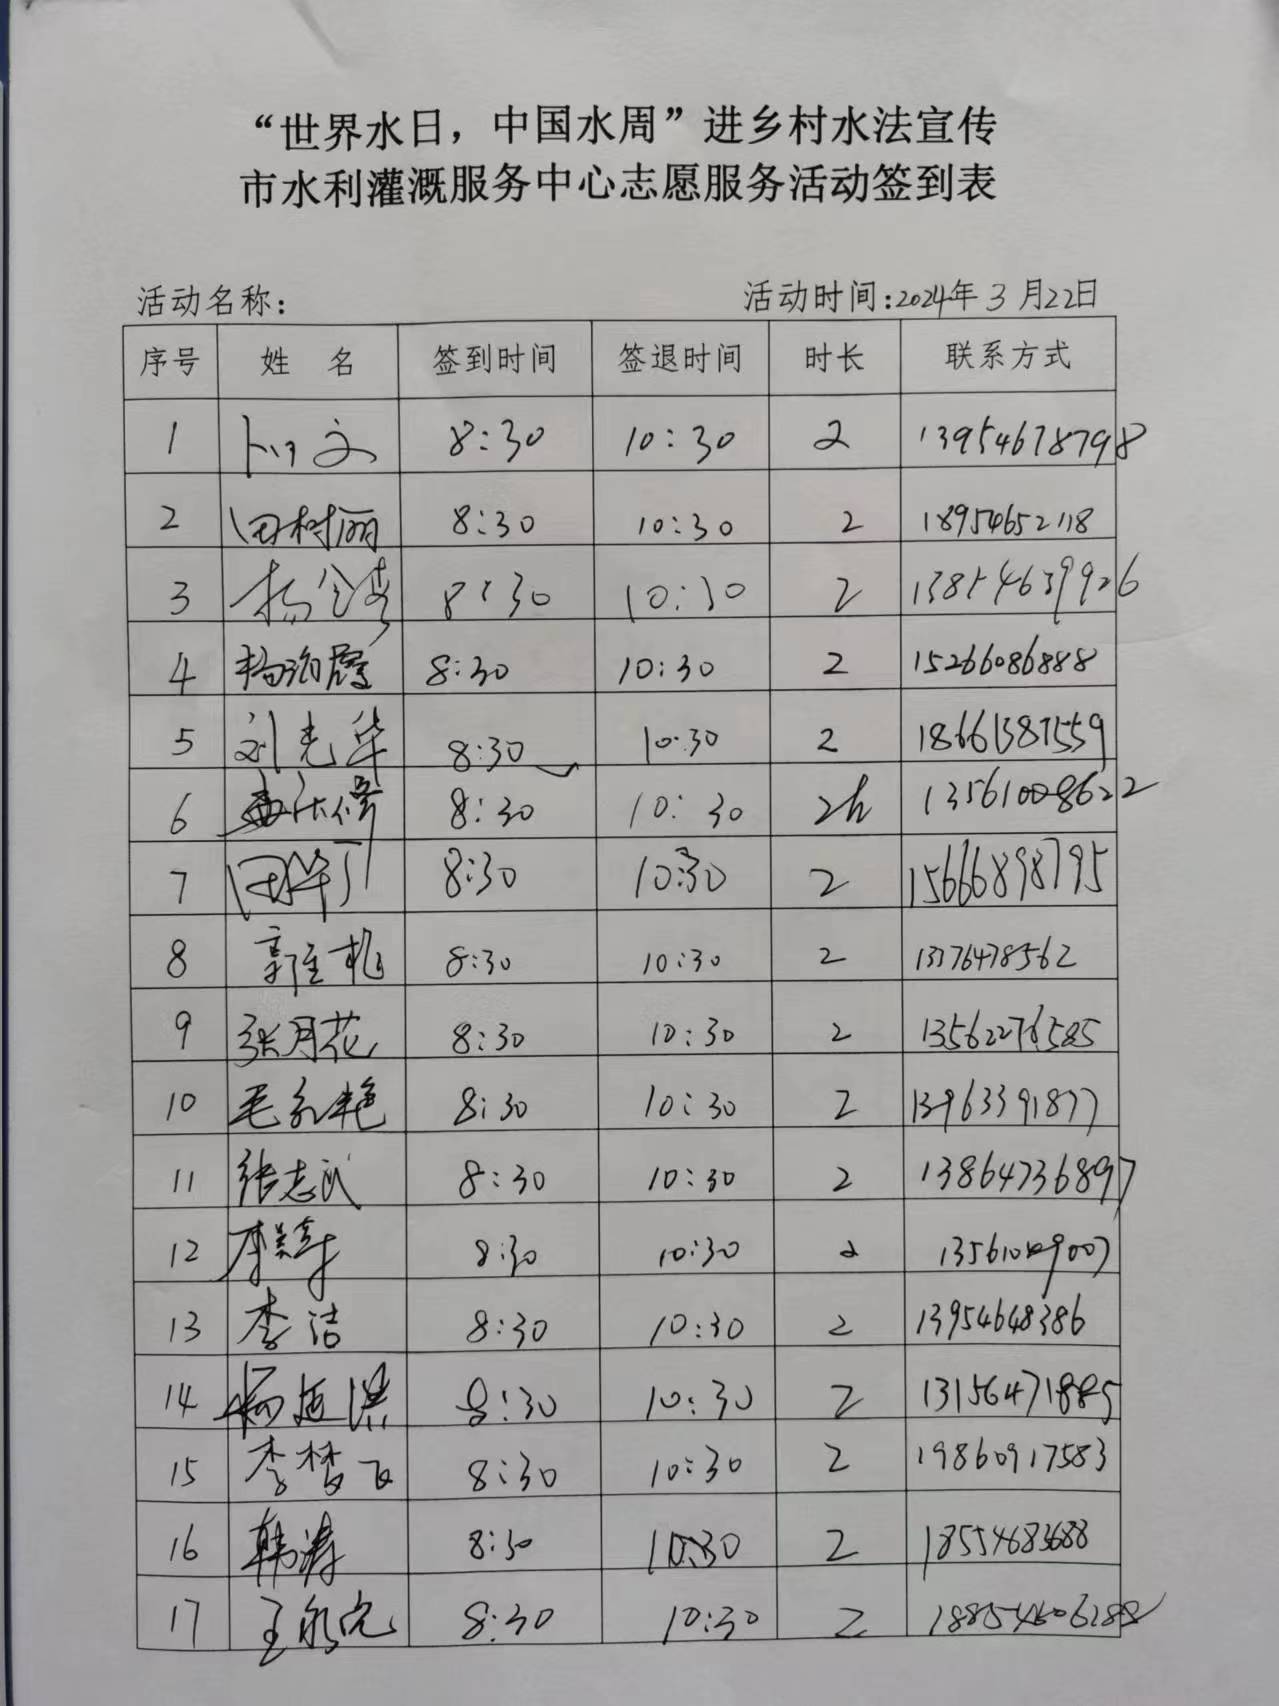 “世界水日，中国水周”进乡村水法宣传
市水利灌溉服务中心志愿服务活动签到表
活动名称： 活动时间:2024年3月22日
序号 姓 名 签到时间 签退时间 时长 联系方式
1 8:30 10:30 2 13954678798
2 田树丽 8:30 10:30 2 18954652118
3 8:30 10:30 2 13854639926
4 8:30 10:30 2 15266086888
5 刘光华 8:30 10:30 2 18661387559
6 8:30 10:30 2h 13561008622
7 8:30 10:30 2 15666898795
8 8:30 10:30 2 13376478562
9 张月花 8:30 10:30 2 13562276585
10 8:30 10:30 2 13963391877
11 张志武 8:30 10:30 2 13864736897
12 8:30 10:30 2
13 李洁 8:30 10:30 2 13954648386
14 8:30 10:30 2 13156471885
15 李梦飞 8:30 10:30 2 19860917583
16 韩涛 8:30 10:30 2 18554683688
17 8:30 10:30 2